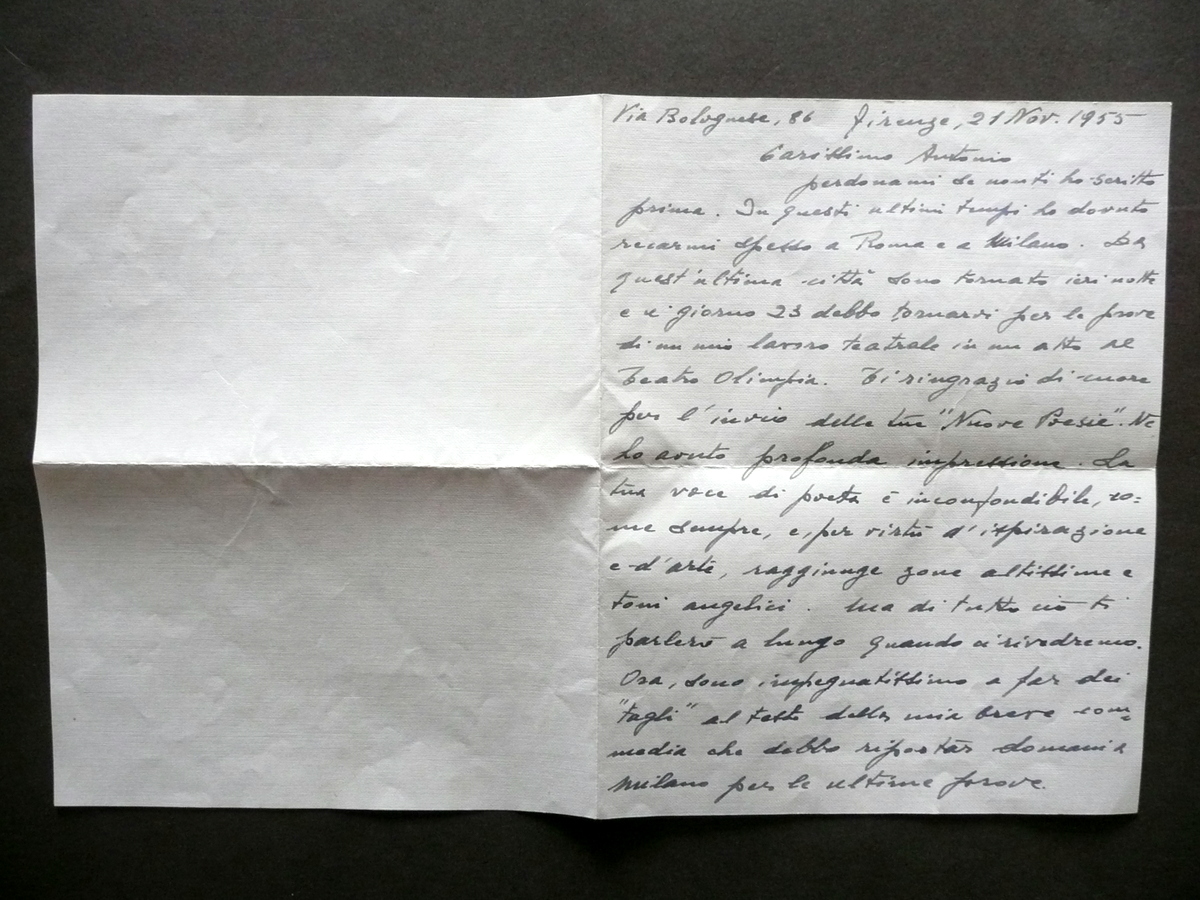 Via Bolognese, 86 Firenze, 21 Nov. 1955
Carissimo Antonio
perdonami se non ti ho scritto
prima. In questi ultimi tempi ho dovuto
recarmi spesso a Roma e a Milano. Da
quest'ultima città sono tornato ieri notte
e il giorno 23 debbo tornarvi per le prove
di un mio lavoro teatrale in un atto al
Teatro Olimpia. Ti ringrazio di cuore
per l'invio delle tue "Nuove Poesie". Ne
ho avuto profonda impressione. La
tua voce di poeta è inconfondibile, co=
me sempre, e, per virtù d'ispirazione
e d'arte, raggiunge zone altissime e
toni angelici. Ma di tutto ciò ti
parlerò a lungo quando ci rivedremo.
Ora, sono impegnatissimo a far dei
"tagli" al testo della mia breve com=
media che debbo riportar domani a
Milano per le ultime prove.